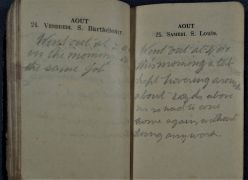 AOUT
24. VENDREDI. S. Barthélemy
Went out at
in the morning
the same job
AOUT
25. SAMEDI. S. Louis.
Went out at
this morning &
kept hovering around
about
as we had to come
home again without
doing any work.